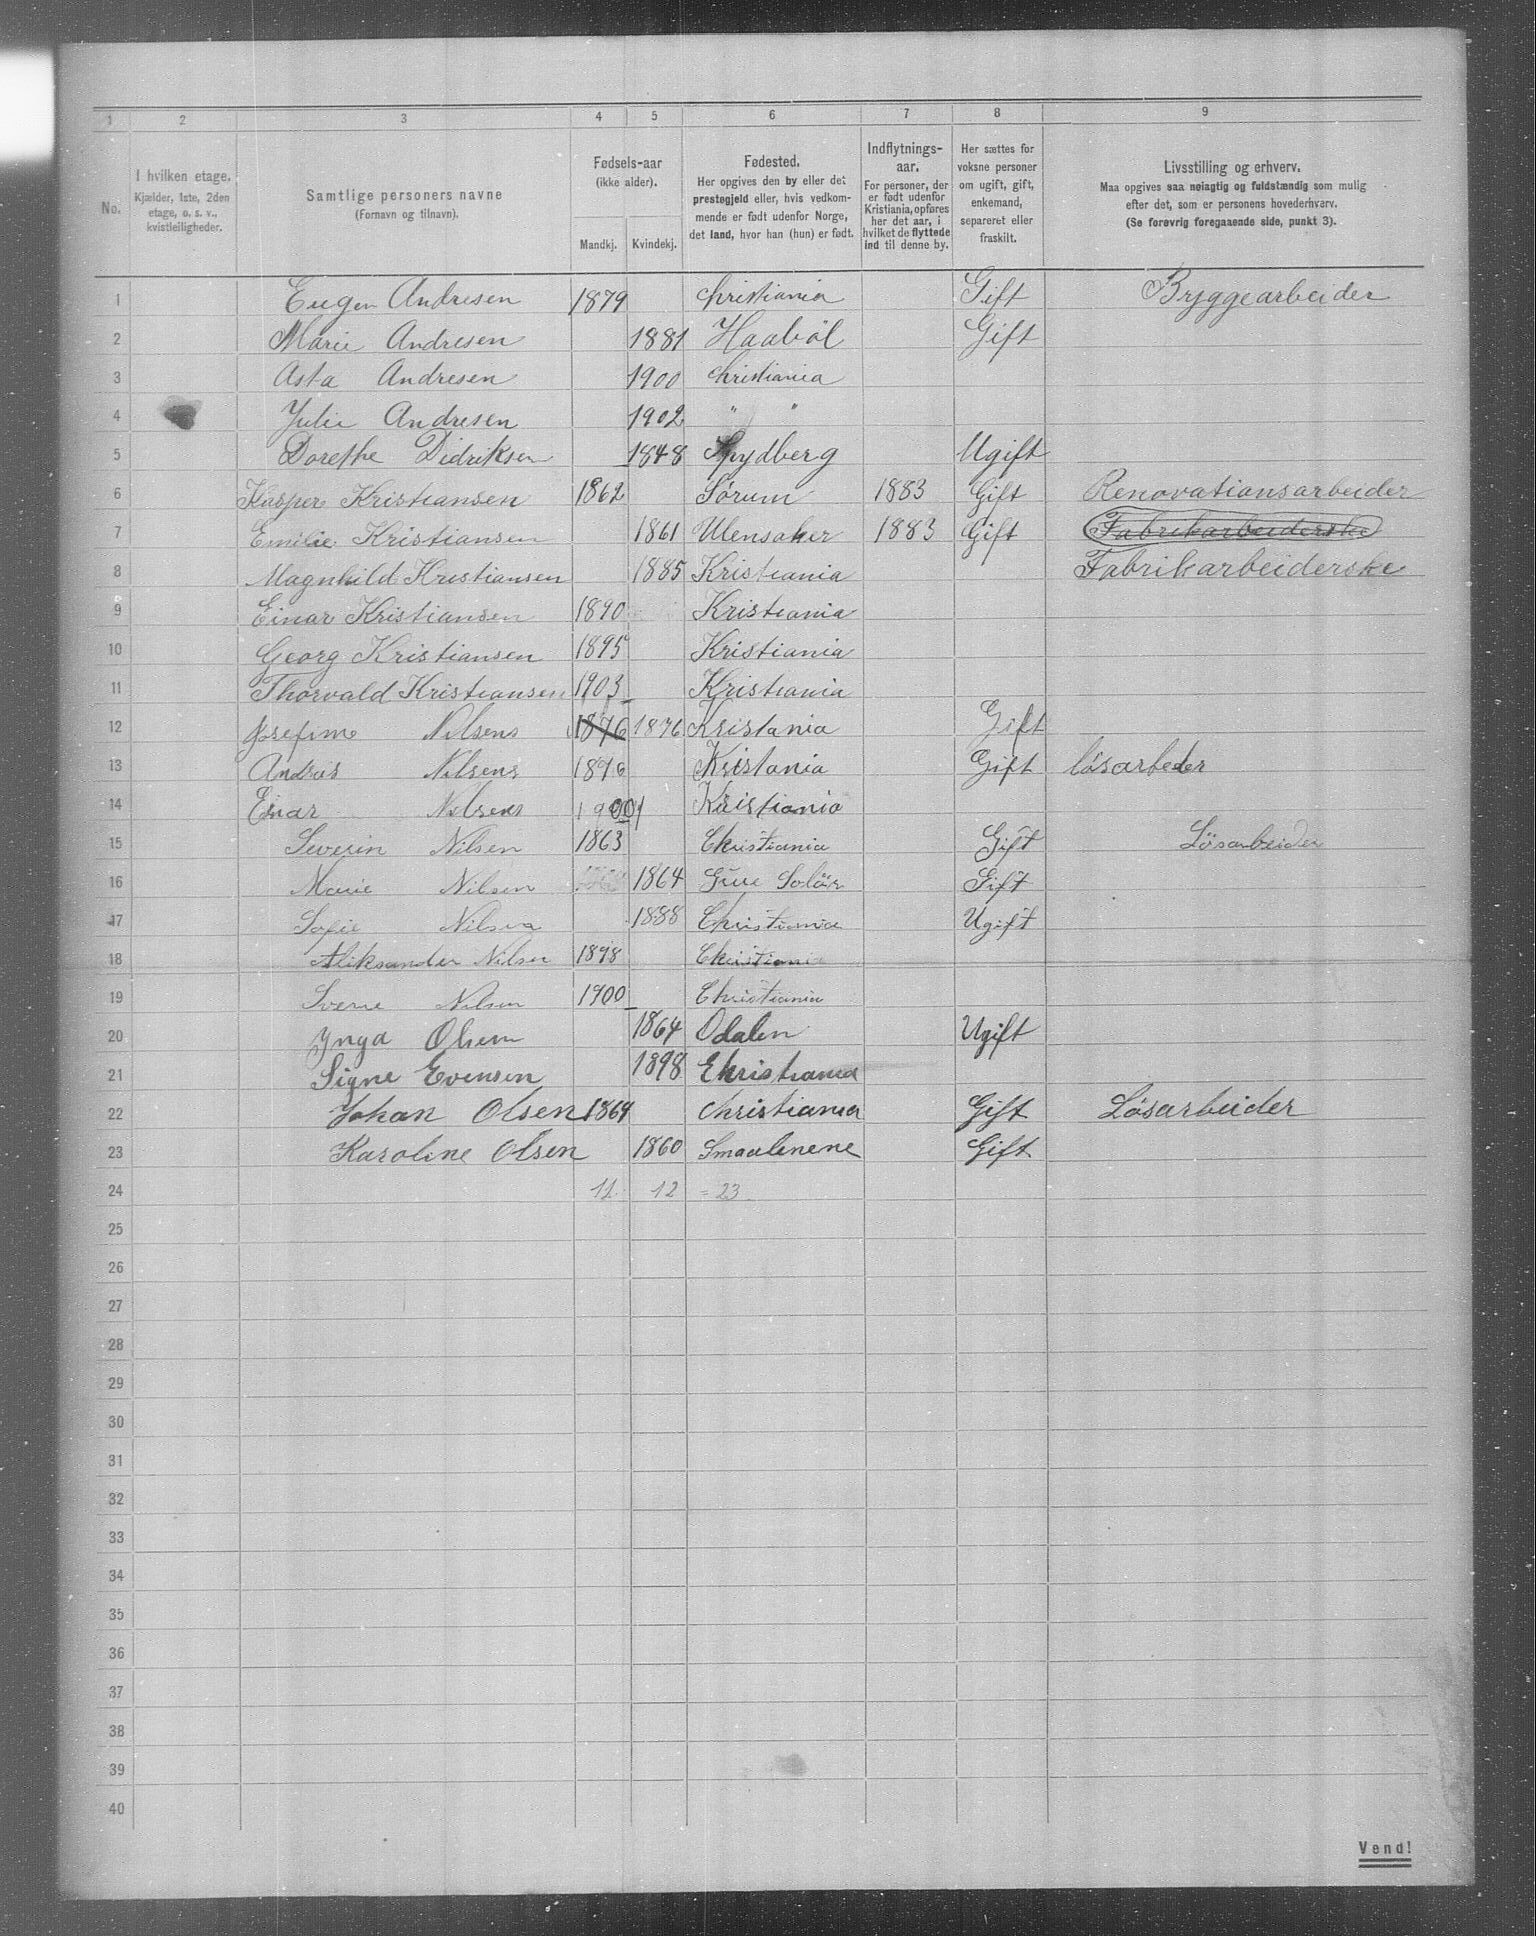 1 2 3 4 5 6 7 8 9
No. I hvilken etage. Kjælder, 1ste, 2den etage, o. s. v., kvistleiligheder. Samtlige personers navne (Fornavn og tilnavn). Fødsels-aar (ikke alder). Mandkj. Kvindekj. Fødested. Her opgives den by eller det prestegjeld eller, hvis vedkommende er født udenfor Norge, det land, hvor han (hun) er født. Indflytnings-aar. For personer, der er født udenfor Kristiania, opføres her det aar, i hvilket de flyttede ind til denne by. Her sættes for voksne personer om ugift, gift, enkemand, separeret eller fraskilt. Livsstilling og erhverv. Maa opgives saa nøiagtig og fuldstændig som mulig efter det, som er personens hovederhverv. (Se forøvrig foregaaende side, punkt 3).
1 Eugen Andresen 1879 Christiania Gift Bryggearbeider
2 Marie Andresen 1881 Haabøl Gift
3 Asta Andresen 1900 Christiania
4 Julie Andresen 1902 " "
5 Dorethe Didriksen 1848 Spydberg Ugift
6 Kasper Kristiansen 1862 Sørum 1883 Gift Renovationsarbeider
7 Emilie Kristiansen 1861 Ulensaker 1883 Gift Fabrikarbeiderske
8 Magnhild Kristiansen 1885 Kristiania Fabrikarbeiderske
9 Einar Kristiansen 1890 Kristiania
10 Georg Kristiansen 1895 Kristiania
11 Thorvald Kristiansen 1903 Kristiania
12 Josefine Nilsens 1876 1876 Kristania Gift
13 Andres Nilsens 1876 Kristania Gift løsarbeder
14 Einar Nilsens Kristiania
15 Severin Nilsen 1863 Christiania Gift Løsarbeider
16 Marie Nilsen 1864 Grue Solør Gift
17 Sofie Nilsen 1888 Christiania Ugift
18 Aliksander Nilsen 1898 Christiania
19 Sverre Nilsen 1900 Christiania
20 Ynga Olsen 1864 Odalen Ugift
21 Signe Evensen 1898 Christiania
22 Johan Olsen 1864 Christiania Gift Løsarbeider
23 Karoline Olsen 1860 Smaalenene Gift
24 11 12 = 23
25
26
27
28
29
30
31
32
33
34
35
36
37
38
39
40
Vend!